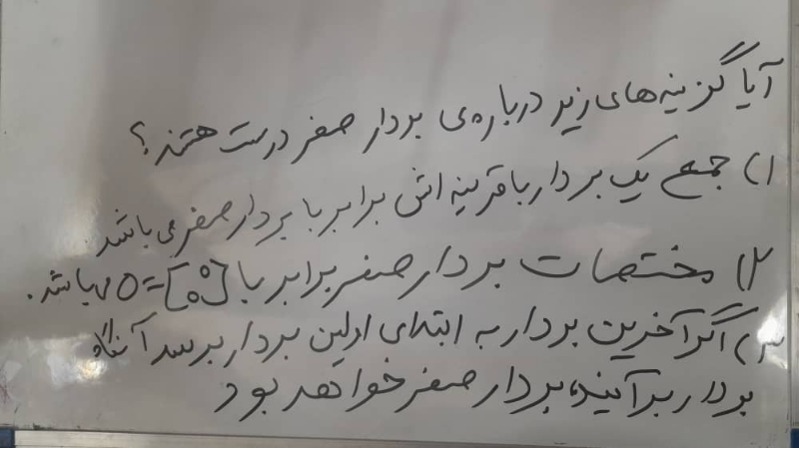 آیا گزینه‌های زیر درباره‌ی بردار صفر درست هستند؟
۱) جمع یک بردار با قرینه‌اش برابر با بردار صفر می‌باشد.
۲) مختصات بردار صفر برابر با [0 0] = 0 می‌باشد.
۳) اگر آخرین بردار به ابتدای اولین بردار برسد آنگاه
بردار برآیند، بردار صفر خواهد بود